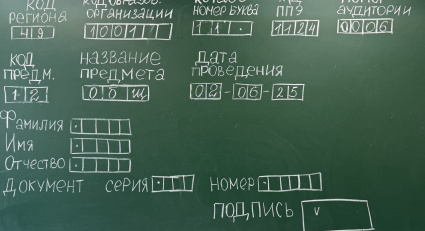 код код образоват. номер
региона организации номер буква ППЭ аудитории
49 10011 11 1124 0006
код название дата
предм. предмета проведения
12 общ 02-06-25
Фамилия
Имя
Отчество
Документ серия номер
подпись v